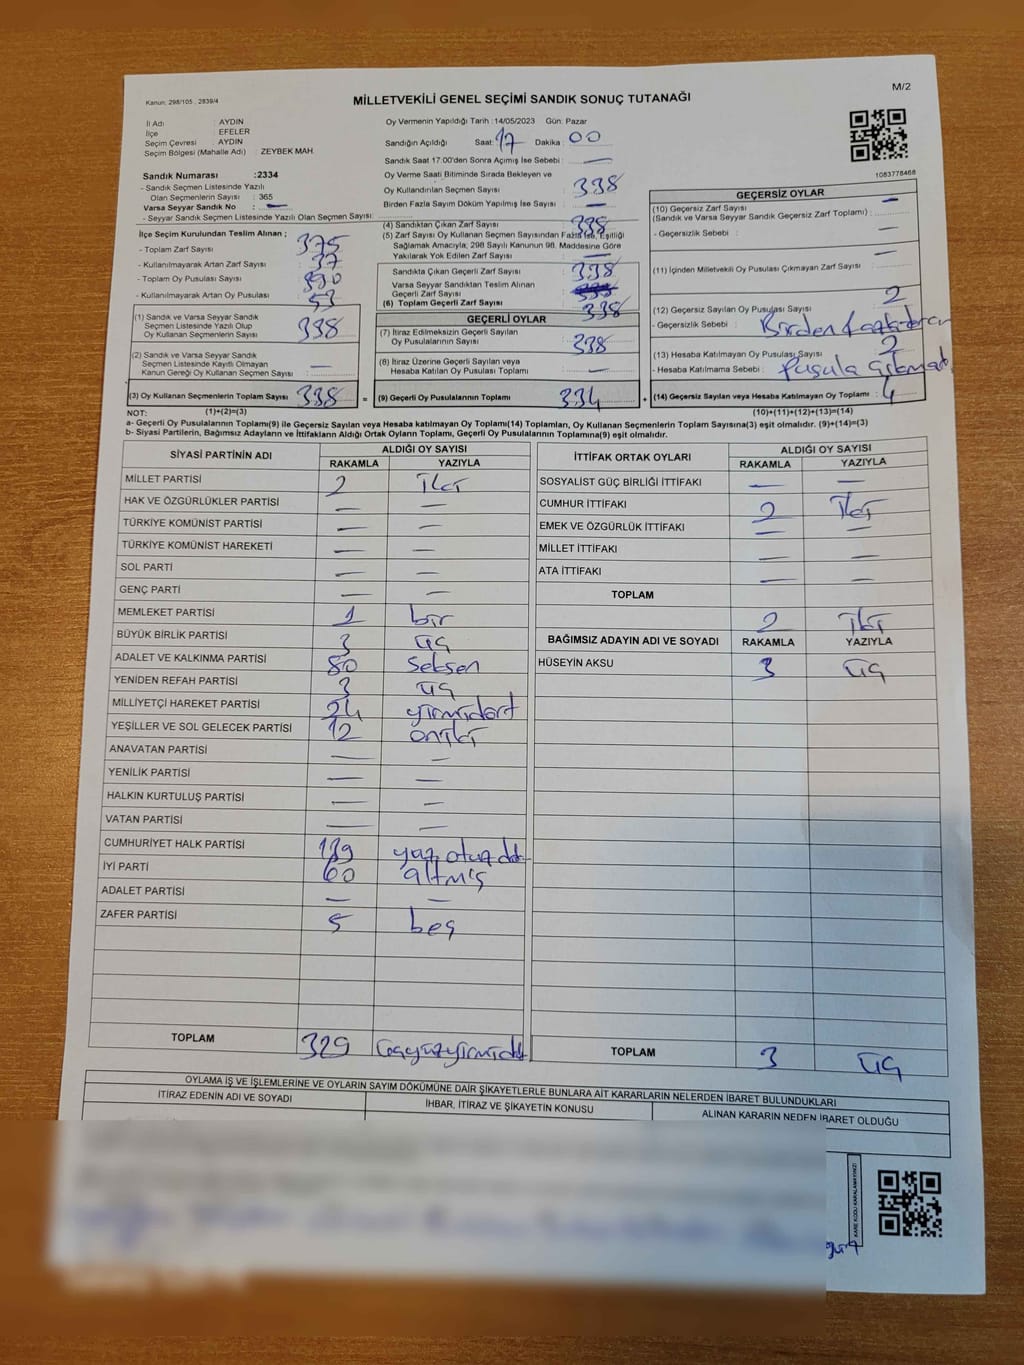 M/2
Kanun: 298/105 , 2839/4
MİLLETVEKİLİ GENEL SEÇİMİ SANDIK SONUÇ TUTANAĞI
İl Adı : AYDIN
İlçe : EFELER
Seçim Çevresi : AYDIN
Seçim Bölgesi (Mahalle Adı) : ZEYBEK MAH.
Sandık Numarası :2334
- Sandık Seçmen Listesinde Yazılı
Olan Seçmenlerin Sayısı : 365
Varsa Seyyar Sandık No : —
- Seyyar Sandık Seçmen Listesinde Yazılı Olan Seçmen Sayısı:
Oy Vermenin Yapıldığı Tarih :14/05/2023 Gün: Pazar
Sandığın Açıldığı Saat: 17 Dakika : 00
Sandık Saat 17:00'den Sonra Açımış İse Sebebi : —
Oy Verme Saati Bitiminde Sırada Bekleyen ve
Oy Kullandırılan Seçmen Sayısı : 338
Birden Fazla Sayım Döküm Yapılmış İse Sayısı : —
1083778468
İlçe Seçim Kurulundan Teslim Alınan ;
- Toplam Zarf Sayısı : 375
- Kullanılmayarak Artan Zarf Sayısı : 37
- Toplam Oy Pusulası Sayısı :
- Kullanılmayarak Artan Oy Pusulası : 53
(1) Sandık ve Varsa Seyyar Sandık
Seçmen Listesinde Yazılı Olup
Oy Kullanan Seçmenlerin Sayısı : 338
(2) Sandık ve Varsa Seyyar Sandık
Seçmen Listesinde Kayıtlı Olmayan
Kanun Gereği Oy Kullanan Seçmen Sayısı : —
(3) Oy Kullanan Seçmenlerin Toplam Sayısı : 338 =
(4) Sandıktan Çıkan Zarf Sayısı : 338
(5) Zarf Sayısı Oy Kullanan Seçmen Sayısından Fazla İse, Eşitliği
Sağlamak Amacıyla, 298 Sayılı Kanunun 98. Maddesine Göre
Yakılarak Yok Edilen Zarf Sayısı : —
Sandıkta Çıkan Geçerli Zarf Sayısı : 338
Varsa Seyyar Sandıktan Teslim Alınan
Geçerli Zarf Sayısı :
(6) Toplam Geçerli Zarf Sayısı : 338
GEÇERLİ OYLAR
(7) İtiraz Edilmeksizin Geçerli Sayılan
Oy Pusulalarının Sayısı : 338
(8) İtiraz Üzerine Geçerli Sayılan veya
Hesaba Katılan Oy Pusulası Toplamı : —
(9) Geçerli Oy Pusulalarının Toplamı : 334 +
GEÇERSİZ OYLAR
(10) Geçersiz Zarf Sayısı —
(Sandık ve Varsa Seyyar Sandık Geçersiz Zarf Toplamı) :
- Geçersizlik Sebebi : —
(11) İçinden Milletvekili Oy Pusulası Çıkmayan Zarf Sayısı : —
(12) Geçersiz Sayılan Oy Pusulası Sayısı : 2
- Geçersizlik Sebebi : Birden
(13) Hesaba Katılmayan Oy Pusulası Sayısı : 2
- Hesaba Katılmama Sebebi : Pusula
(14) Geçersiz Sayılan veya Hesaba Katılmayan Oy Toplamı : 4
NOT: (1)+(2)=(3) (10)+(11)+(12)+(13)=(14)
a- Geçerli Oy Pusulalarının Toplamı(9) ile Geçersiz Sayılan veya Hesaba Katılmayan Oy Toplamı(14) Toplamları, Oy Kullanan Seçmenlerin Toplam Sayısına(3) eşit olmalıdır. (9)+(14)=(3)
b- Siyasi Partilerin, Bağımsız Adayların ve İttifakların Aldığı Ortak Oyların Toplamı, Geçerli Oy Pusulalarının Toplamına(9) eşit olmalıdır.
SİYASİ PARTİNİN ADI ALDIĞI OY SAYISI
RAKAMLA YAZIYLA
MİLLET PARTİSİ 2 İki
HAK VE ÖZGÜRLÜKLER PARTİSİ — —
TÜRKİYE KOMÜNİST PARTİSİ — —
TÜRKİYE KOMÜNİST HAREKETİ — —
SOL PARTİ — —
GENÇ PARTİ — —
MEMLEKET PARTİSİ 1 bir
BÜYÜK BİRLİK PARTİSİ 3 üç
ADALET VE KALKINMA PARTİSİ 80 Seksen
YENİDEN REFAH PARTİSİ 3 üç
MİLLİYETÇİ HAREKET PARTİSİ 24 yirmidört
YEŞİLLER VE SOL GELECEK PARTİSİ 12 oniki
ANAVATAN PARTİSİ — —
YENİLİK PARTİSİ — —
HALKIN KURTULUŞ PARTİSİ — —
VATAN PARTİSİ — —
CUMHURİYET HALK PARTİSİ 139 yüz otuz
İYİ PARTİ 60 altmış
ADALET PARTİSİ — —
ZAFER PARTİSİ 5 beş
TOPLAM 329
İTTİFAK ORTAK OYLARI ALDIĞI OY SAYISI
RAKAMLA YAZIYLA
SOSYALİST GÜÇ BİRLİĞİ İTTİFAKI — —
CUMHUR İTTİFAKI 2 İki
EMEK VE ÖZGÜRLÜK İTTİFAKI — —
MİLLET İTTİFAKI — —
ATA İTTİFAKI — —
TOPLAM
2 İki
BAĞIMSIZ ADAYIN ADI VE SOYADI RAKAMLA YAZIYLA
HÜSEYİN AKSU 3 üç
TOPLAM 3 üç
OYLAMA İŞ VE İŞLEMLERİNE VE OYLARIN SAYIM DÖKÜMÜNE DAİR ŞİKAYETLERLE BUNLARA AİT KARARLARIN NELERDEN İBARET BULUNDUKLARI
İTİRAZ EDENİN ADI VE SOYADI İHBAR, İTİRAZ VE ŞİKAYETİN KONUSU ALINAN KARARIN NEDEN İBARET OLDUĞU
KARE KODU KARALAMAYINIZ!